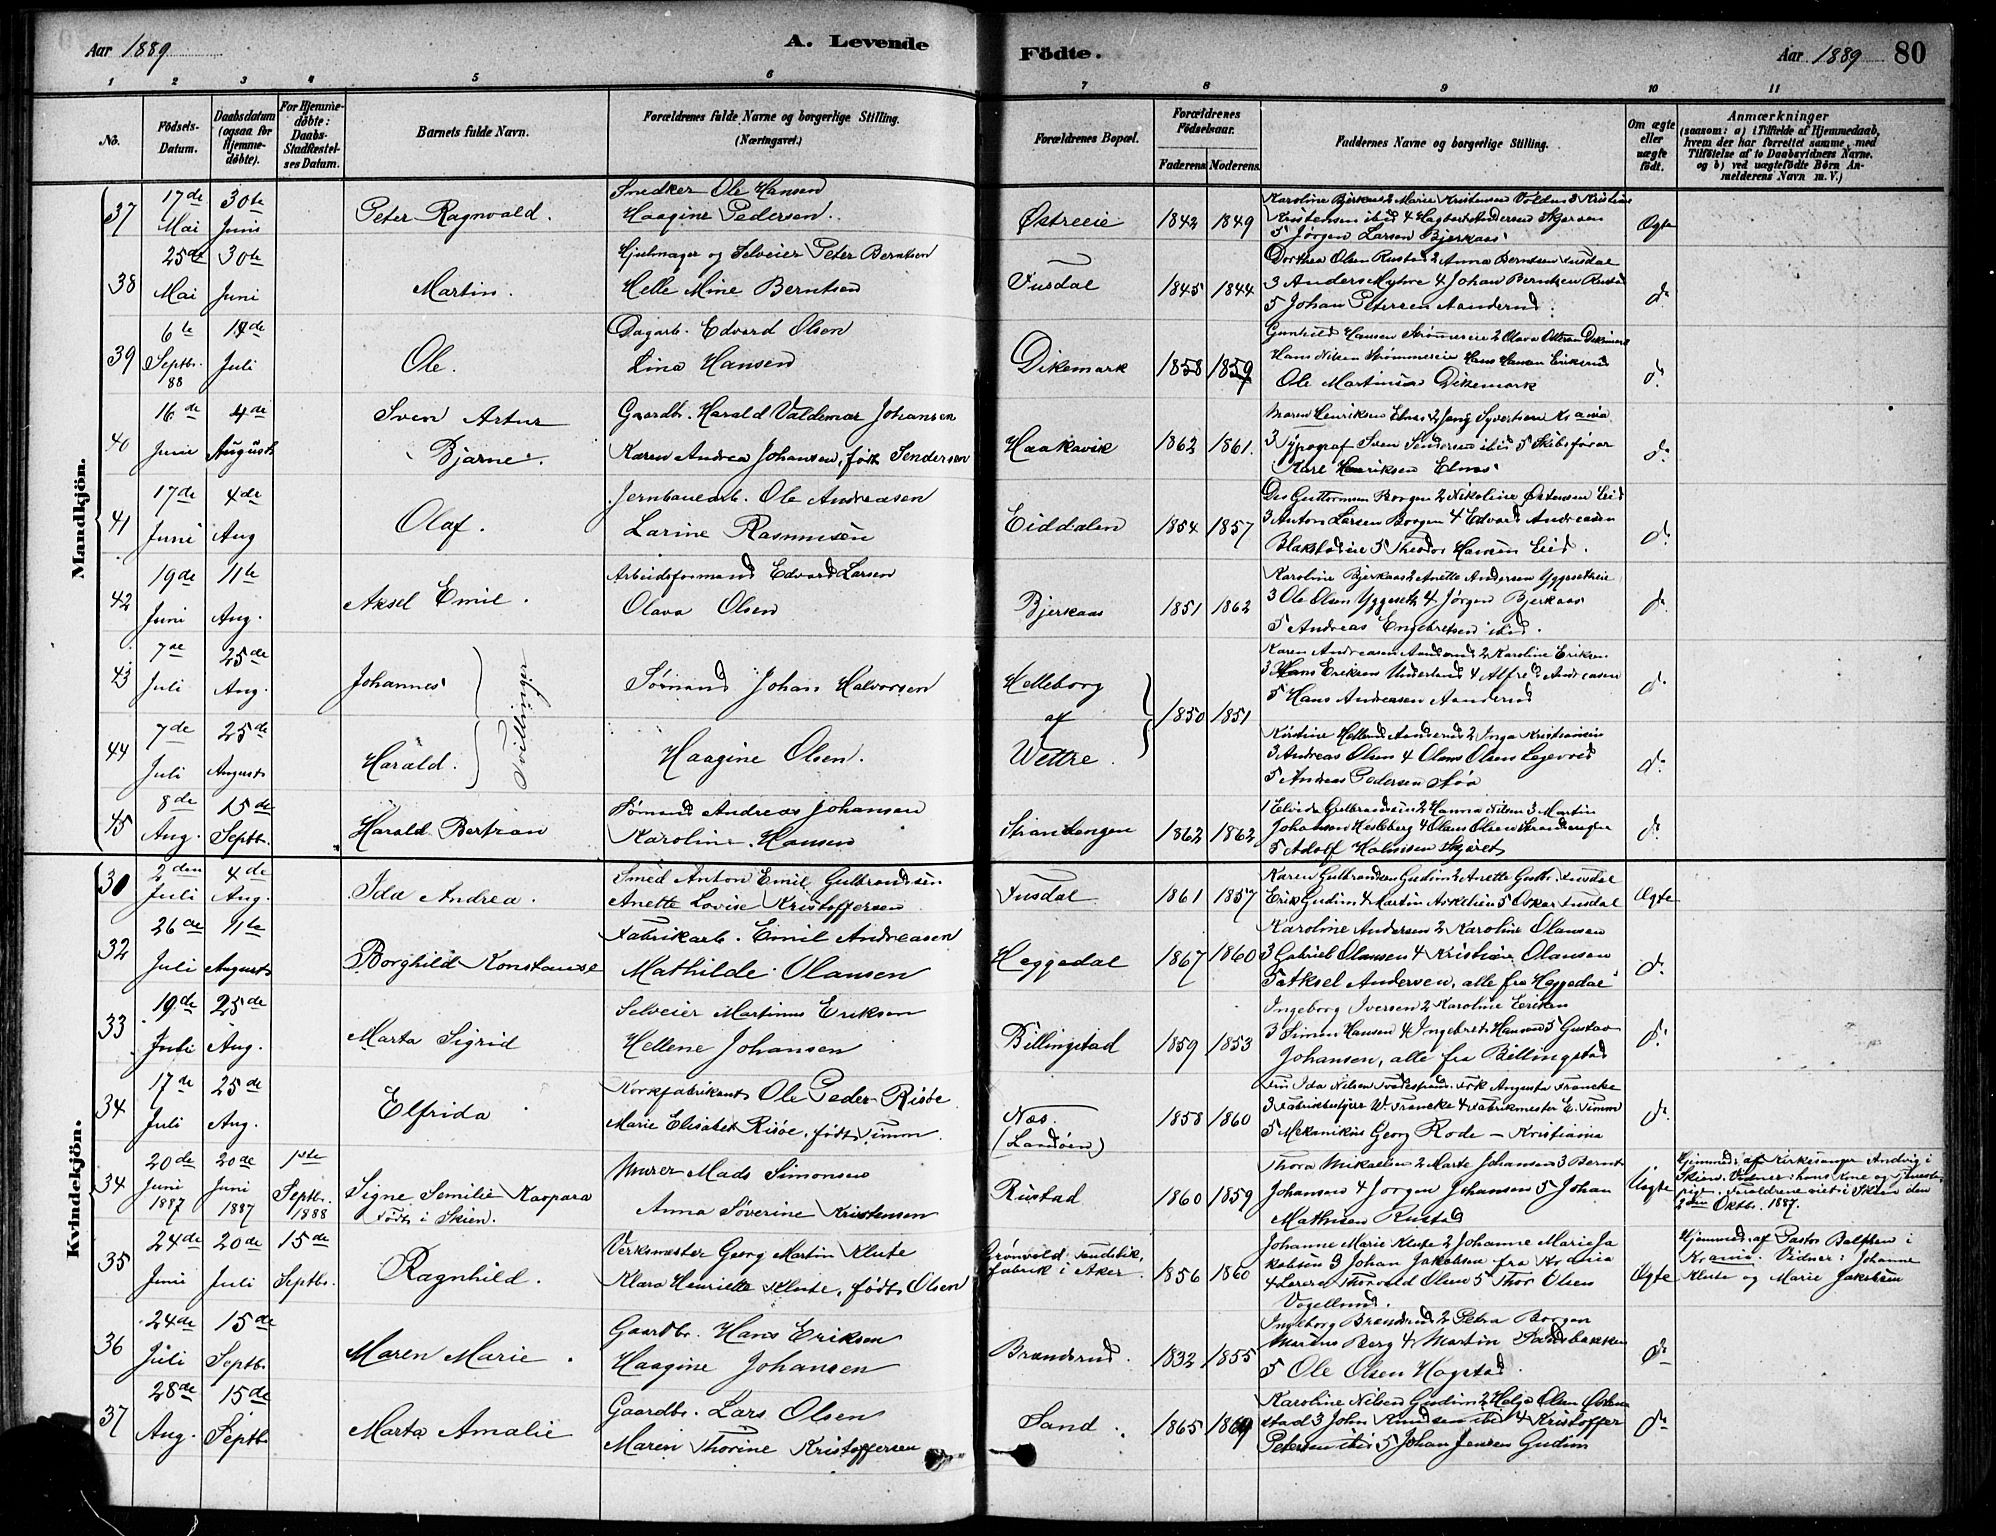 Aar 1889
A. Levende
Födte.
Aar 1889
80
1 2 3 4 5 6 7 8 9 10 11
No.
Födsels-
Datum.
Daabsdatum
(ogsaa for
Hjemme-
døbte).
For Hjemme-
døbte:
Daabs-
Stadfæstel-
ses Datum.
Barnets fulde Navn.
Forældrenes fulde Navne og borgerlige Stilling.
(Næringsvei.)
Forældrenes Bopæl.
Forældrenes
Födselsaar.
Faderens. Moderens.
Faddernes Navne og borgerlige Stilling.
Om ægte
eller
uægte
födt.
Anmærkninger
(saasom: a) i Tilfælde af Hjemmedaab,
hvem der har forrettet samme, med
Tilföielse af to Daabsvidners Navne.
og b) ved uægtefödte Börn An-
melderens Navn m. V.)
Mandkjön.
37
17de
Mai
30te
Juni
Peter Ragnvald.
Snedker Ole Hansen
Haagine Pedersen.
Østreeie
1842 1849
Kristensen ibid 4 Hagbart Andersen
5 Jørgen Larsen Bjerkaas
Ægte
38
25de
Mai
30te
Juni
Martin.
Hjulmager og Selveier Peter Berntsen
Helle Mine Berntsen
Fusdal
1845 1844
Dorthea Olsen Rustad 2 Anna Berntsen Fusdal
3 Anders Myhre 4 Johan Berntsen Rustad
5 Johan Petersen Aanderud.
do
39
6te
Septbr.
88
14de
Juli
Ole.
Dagarb. Edvard Olsen
Lina Hansen
Dikemark
1858 1859
Gunhild Hansen Strømmereie 2 Olava Dikemark
Hans Nilsen Strømmereie Hans Hansen
Ole Martinsen Dikemark
do
40
16de
Juni
4de
August
Sven Artur
Bjarne.
Gaardbr. Harald Valdemar Johansen
Karen Andrea Johansen, født Sendersen
Haakavik
1862 1861.
Maren Henriksen Elnæs 2 Jenny Syvertsen Krania
3 Typograf Sven Sendersen ibid 5 Skibsfører
Karl Henriksen Elnæs
do
41
17de
Juni
4de
Aug
Olaf.
Jernbanearb. Ole Andreasen
Larine Rasmusen
Eiddalen
1854 1857
Guttormsen Borgen 2 Nikoline Østensen Eid
3 Anton Larsen Borgen 4 Edvard Andreasen
Blakstadeie 5 Theodor Hansen Eid.
do
42
19de
Juni
11te
Aug.
Aksel Emil.
Arbeidsformand Edvard Larsen
Olava Olsen
Bjerkaas
1851 1862
Karoline Bjerkaas 2 Anette Andersen Yggeseteie
3 Ole Olsen Yggeseth 4 Jørgen Bjerkaas
5 Andreas Engebretsen ibid.
do
43
7de
Juli
25de
Aug.
Johannes
Tvillinger
Sømand Johan Halvorsen
Helleborg
af
Wettre.
1850 1851
Karen Andreasen Aanderud 2 Karoline Eriksen
3 Hans Eriksen Underlund 4 Alfred Andreasen
5 Hans Andreasen Aanderud
do
44
7de
Juli
25de
August
Harald.
Haagine Olsen.
Kirstine Helland Aanderud 2 Inga Kristiansen
3 Andreas Olsen 4 Olaus Olsen
5 Andreas Pedersen Støa
do
45
8de
Aug.
15de
Septbr.
Harald Bertran
Sømand Andreas Johansen
Karoline Hansen
Strandengen
1862 1862
1 Elvida Gulbrandsen 2 Hanna Nilsen 3 Martin
Johansen Hesleberg 4 Olaus Olsen Strandengen
5 Adolf Halvorsen Skjæret
do
Kvindekjön.
30
2den
Juli
4de
Aug.
Ida Andrea.
Smed Anton Emil Gulbrandsen
Anette Lovise Kristoffersen
Fusdal
1861 1857
Karen Gulbrandsen Gudim 2 Anette Gulb. Fusdal
Erik Gudim 4 Martin Askelsen 5 Oskar Fusdal
Ægte
32
26de
Juli
11te
August
Borghild Konstanse
Fabrikarb. Emil Andreasen
Mathilde Olausen
Heggedal
1867 1860
Karoline Andersen 2 Karoline Olausen
3 Gabriel Olausen 4 Kristian Olausen
5 Aksel Andersen, alle fra Heggedal
do
33
19de
Juli
25de
Aug.
Marta Sigrid
Selveier Martinus Eriksen
Hellene Johansen
Billingstad
1859 1853
Ingeborg Iversen 2 Karoline Eriksen
3 Simen Hansen 4 Ingebret Hansen 5 Gustav
Johansen, alle fra Billingstad
do
34
17de
Juli
25de
Aug.
Elfrida
Korkfabrikant Ole Peder Risøe
Marie Elisabet Risøe, født Timm.
Næs.
(Landøen)
1858 1860
Fru Ida Nilsen Tvedestrand. Frk Augusta Francke
3 Fabrikbestyrer W. Francke 4 Fabrikmester E. Timm
5 Mekanikus Georg Rode — Kristiania
do
34
20de
Juni
1887
20de
Juni
1887
1ste
Septbr.
1888
Signe Semilie Kaspara
Født i Skien.
Murer Mads Simonsen
Anna Søverine Kristensen
Rustad
1860 1859
Thora Mikaelsen 2 Marte Johansen 3 Bernt
Johansen 4 Jørgen Johansen 5 Johan
Mathisen Rustad
Uægte
Hjemmed. af Kirkesanger Andvig i
Skien. Vidner: hans Kone og Tjeneste-
pigen. Forældrene viet i Skien den
2den Oktbr. 1887.
35
24de
Juni
20de
Juli
15de
Septbr.
Ragnhild.
Verksmester Georg Martin Klute
Klara Henriette Klute, født Olsen
Grønvold Fændstik-
fabrik i Aker.
1856 1860
Johanne Marie Klute 2 Johanne Marie Ja
kobsen 3 Johan Jakobsen fra Krania
4 Lorens Thorvald Olsen 5 Thor Olsen
Vogellund.
Ægte
Hjemmed. af Pastor Balchen i
Krania. Vidner: Johanne
Klute og Marie Jakobsen
36
24de
Juli
15de
Septbr.
Maren Marie.
Gaardbr. Hans Eriksen
Haagine Johansen
Brænderud.
1832 1855
Ingeborg Brænderud 2 Petra Borgen
Marius Berg 4 Martin Sandsbakken
5 Ole Olsen Hogstad.
do
37
28de
Aug.
15de
Septbr.
Marta Amalie
Gaardbr. Lars Olsen
Maren Thorine Kristoffersen
Sand.
1865 1869
Karoline Nilsen Gudim 2 Helga Olsen Østen
stad 3 John Knudsen ibid 4 Kristoffer
Petersen ibid 5 Johan Jensen Gudim
do